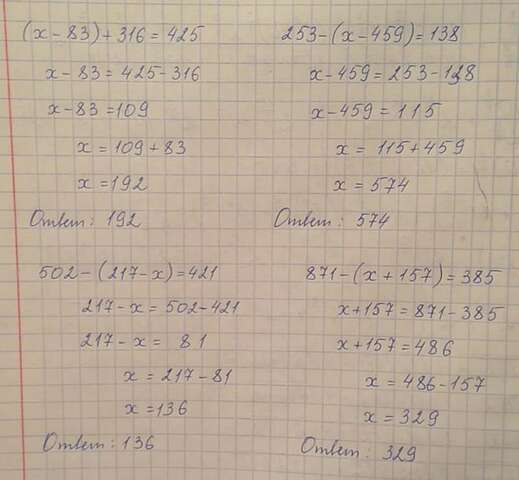 (x - 83) + 316 = 425
x - 83 = 425 - 316
x - 83 = 109
x = 109 + 83
x = 192
Ответ: 192
253 - (x - 459) = 138
x - 459 = 253 - 138
x - 459 = 115
x = 115 + 459
x = 574
Ответ: 574
502 - (217 - x) = 421
217 - x = 502 - 421
217 - x = 81
x = 217 - 81
x = 136
Ответ: 136
871 - (x + 157) = 385
x + 157 = 871 - 385
x + 157 = 486
x = 486 - 157
x = 329
Ответ: 329